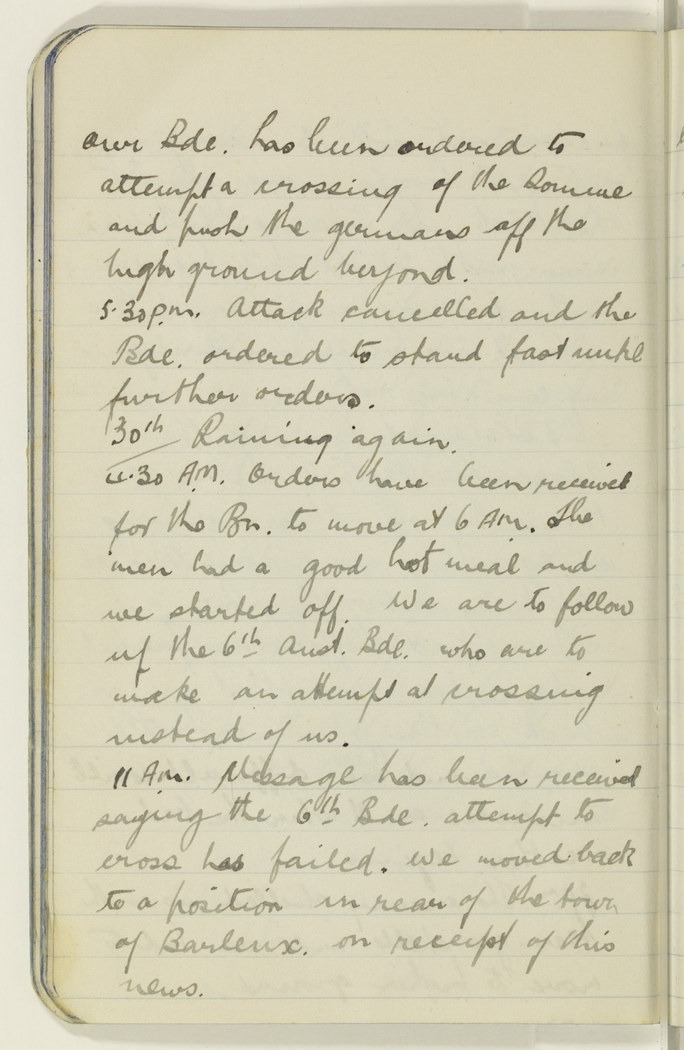 our Bde. has been ordered to
attempt a crossing of the Somme
and push the germans off the
high ground beyond.
5.30 p.m. Attack cancelled and the
Bde. ordered to stand fast until
further orders.
30th Raining again.
4.30 AM. Orders have been received
for the Bn. to move at 6 AM. The
men had a good hot meal and
we started off. We are to follow
up the 6th Aust. Bde. who are to
make an attempt at crossing
instead of us.
11 AM. Message has been received
saying the 6th Bde. attempt to
cross has failed. We moved back
to a position in rear of the town
of Barleux. on receipt of this
news.